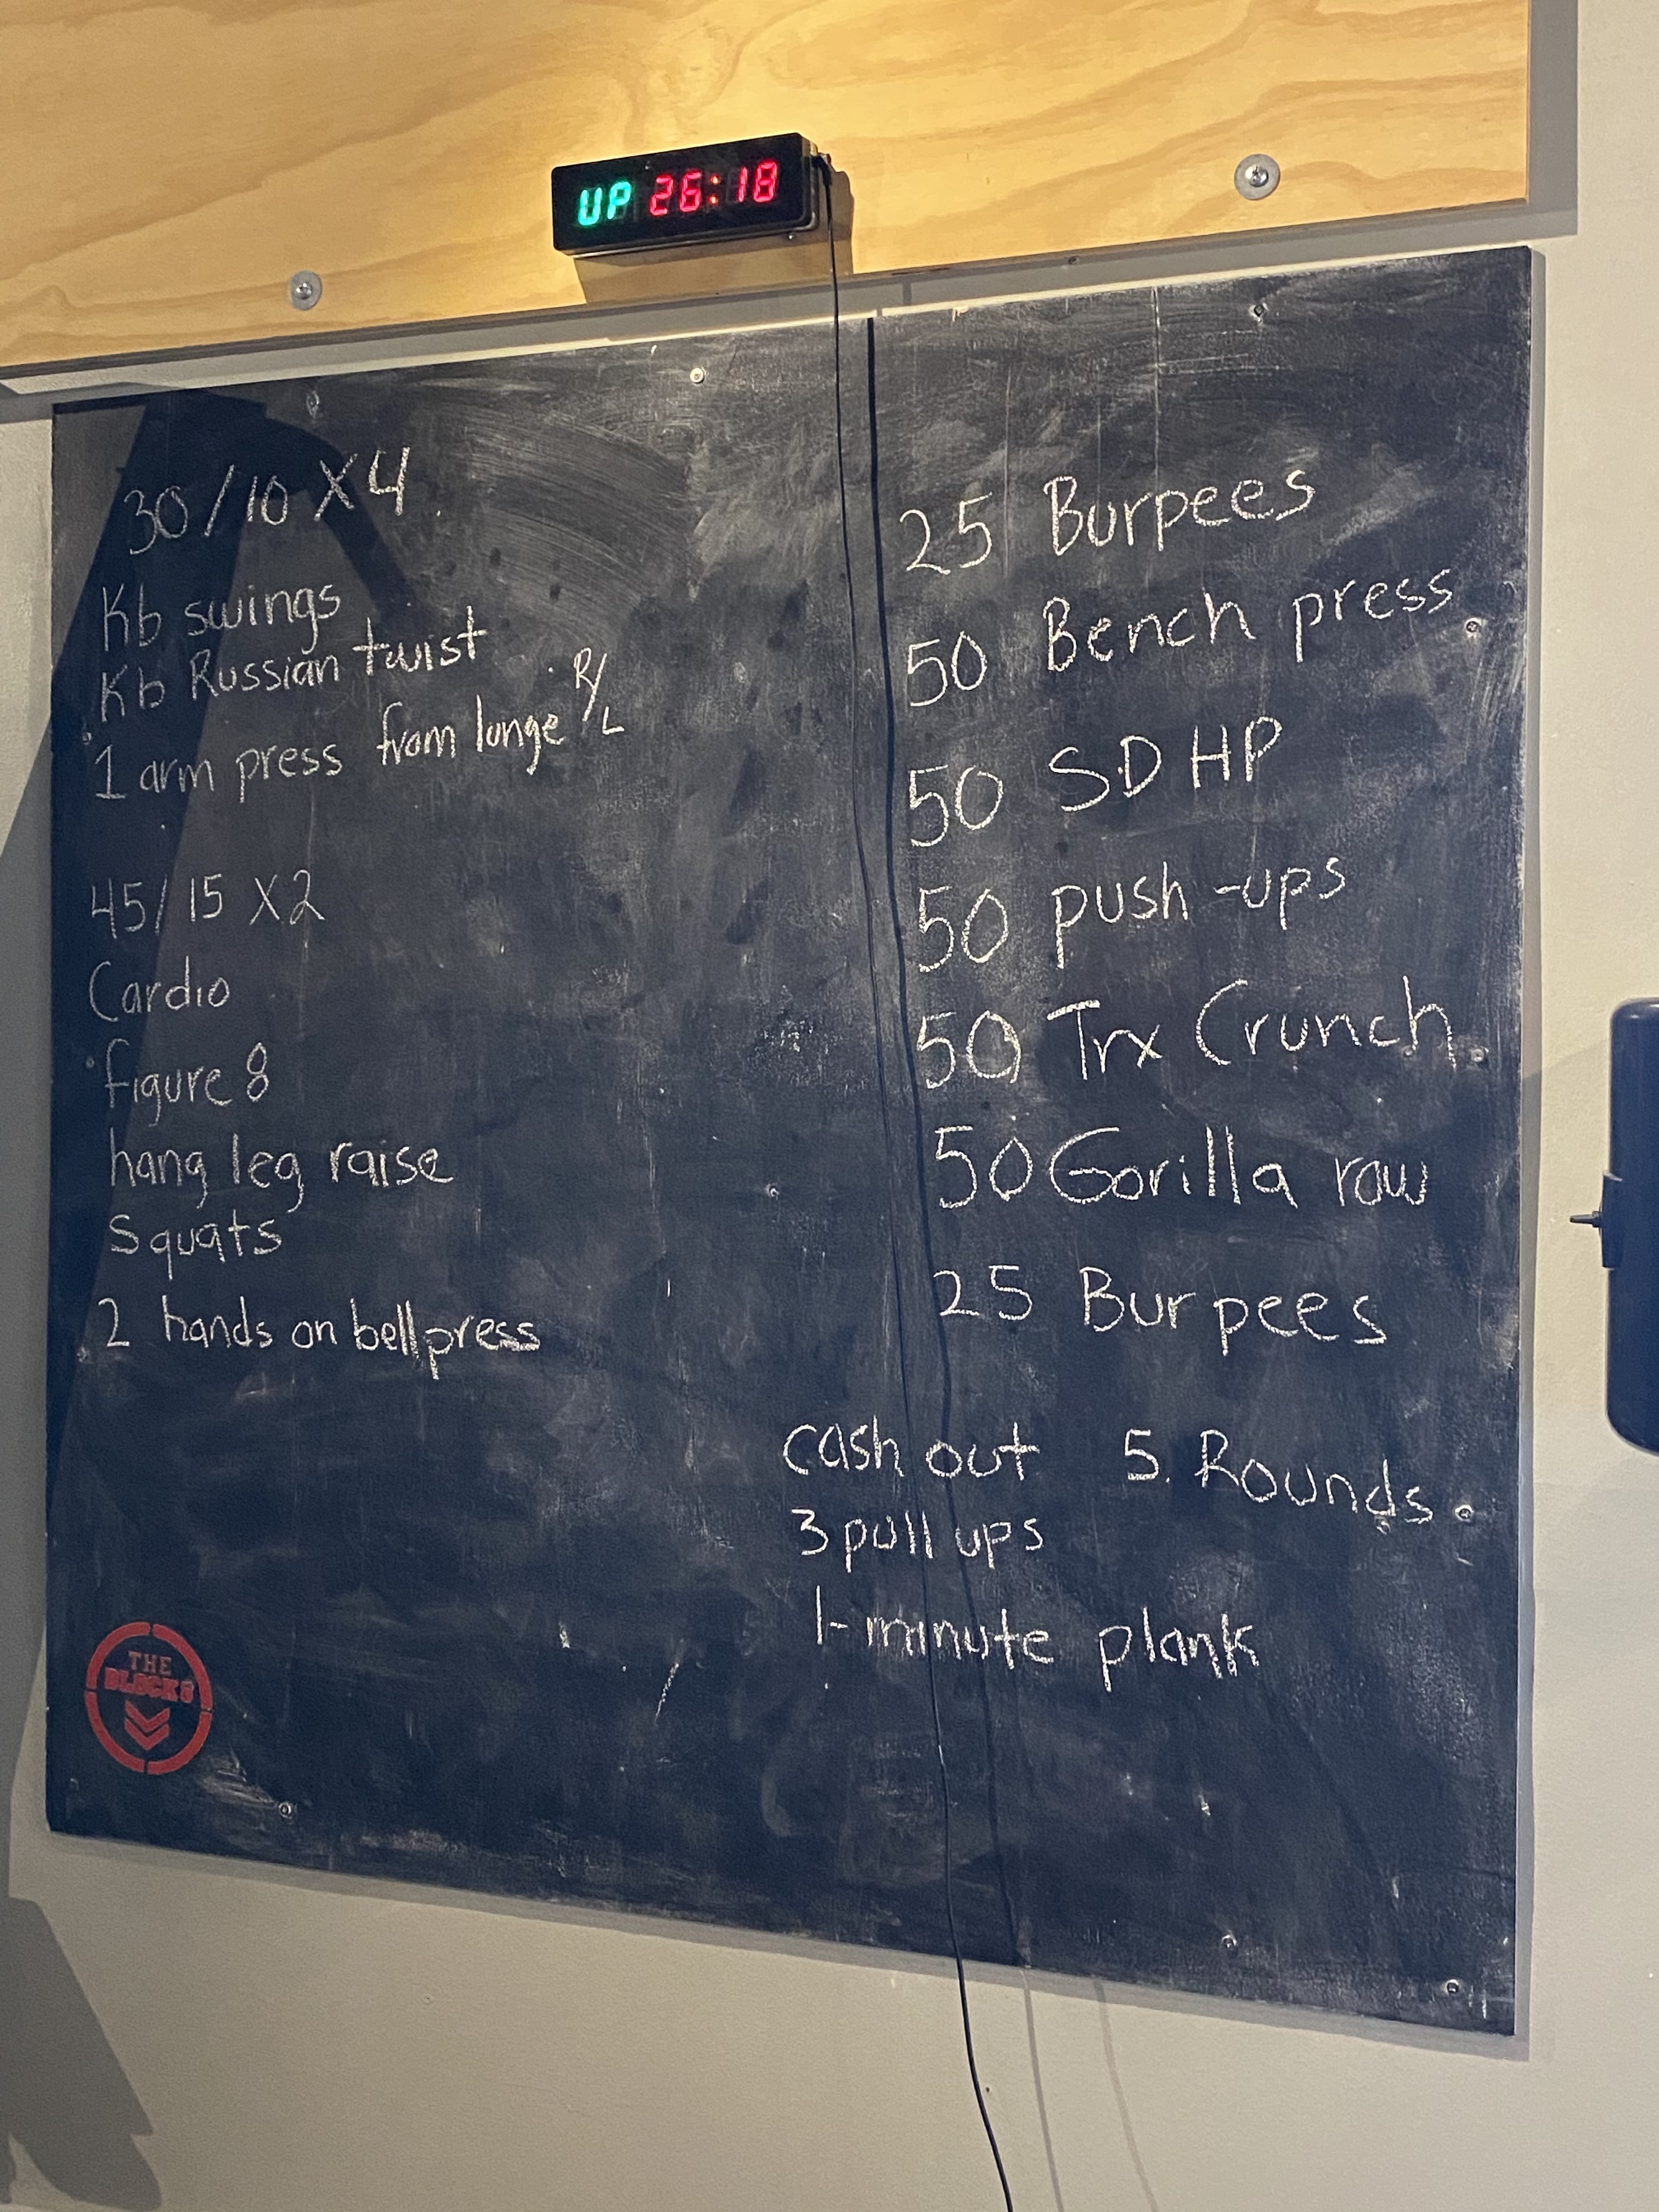 UP 26:18
30/10 X4
Kb swings
Kb Russian twist
1 arm press from lunge R/L
45/15 X2
Cardio
figure 8
hang leg raise
squats
2 hands on bell press
25 Burpees
50 Bench press
50 SDHP
50 push-ups
50 Trx Crunch
50 Gorilla row
25 Burpees
cash out 5 Rounds
3 pull ups
1-minute plank
THE
BLOCKS